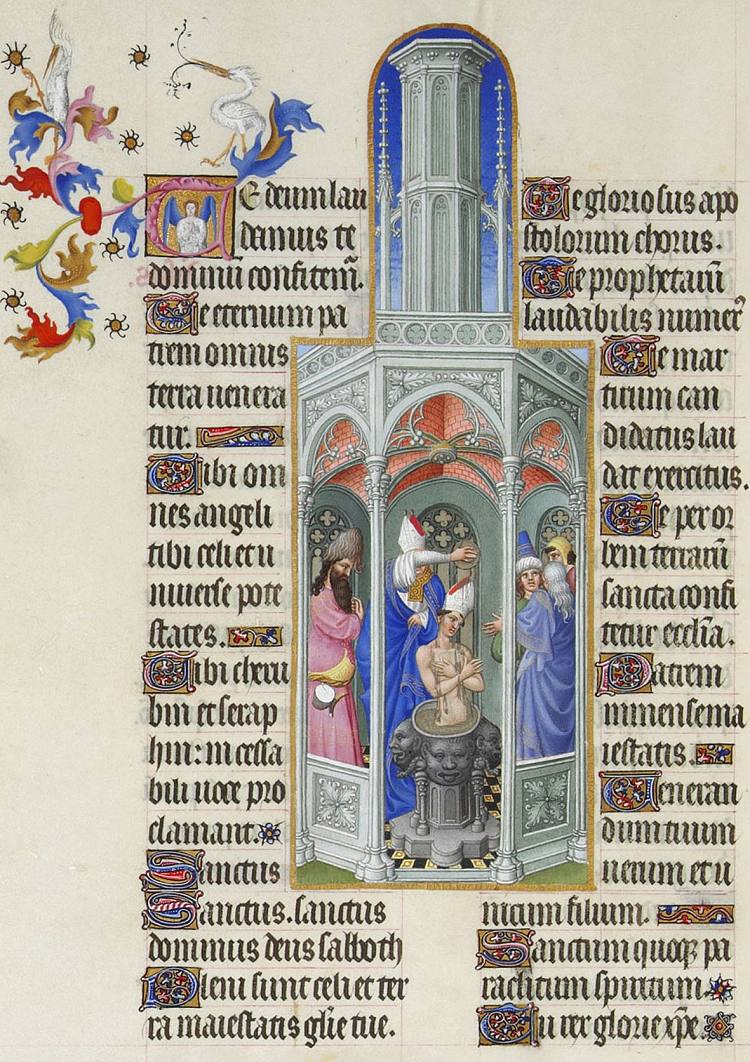 Te deum lau
damus te
dominū confitem̄.
Te eternum pa
trem omnis
terra uenera
tur.
Tibi om
nes angeli
tibi celi et u
niuerse pote
states.
Tibi cheru
bin et serap
hin: in cessa
bili uoce pro
clamant.
Sanctus
Sanctus. sanctus
dominus deus sabboth
Pleni sunt celi et ter
ra maiestatis glīe tue.
Te gloriosus apo
stolorum chorus.
Te prophetarū
laudabilis numerꝰ
Te mar
tirum can
didatus lau
dat exercitus.
Te per or
bem terrarū
sancta confi
tetur ecclīa.
Patrem
inmense ma
iestatis.
Ueneran
dum tuum
uerum et u
nicum filium.
Sanctum quoqꝫ pa
raclitum spiritum.
Tu rex glorie xp̄e.